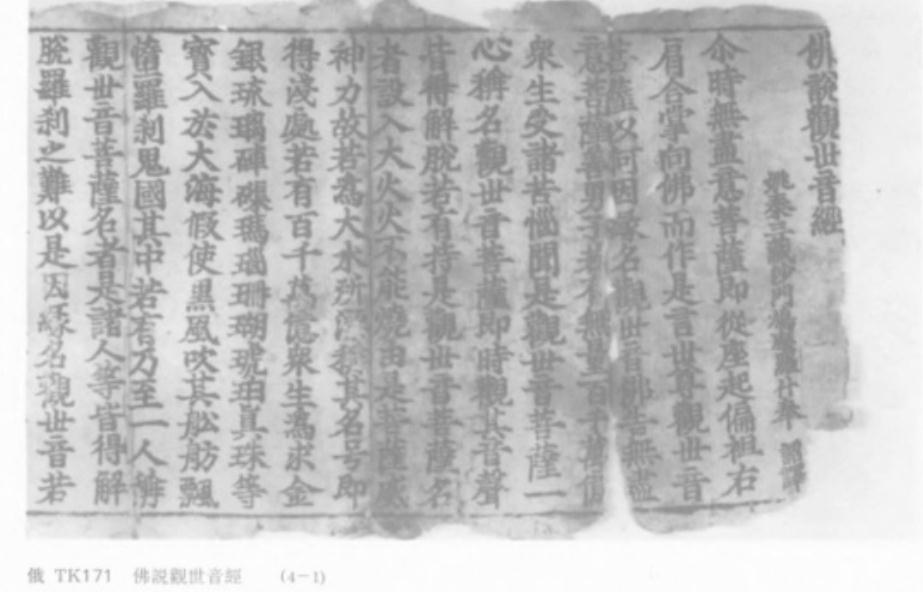 佛說觀世音經
姚秦三藏沙門鳩摩羅什奉 詔譯
尒時無盡意菩薩即從座起偏袒右
肩合掌向佛而作是言世尊觀世音
菩薩以何因緣名觀世音佛告無盡
意菩薩善男子若有無量百千萬億
衆生受諸苦惱聞是觀世音菩薩一
心稱名觀世音菩薩即時觀其音聲
皆得解脫若有持是觀世音菩薩名
者設入大火火不能燒由是菩薩威
神力故若為大水所漂稱其名号即
得淺處若有百千萬億衆生為求金
銀琉璃硨磲瑪瑙珊瑚琥珀真珠等
寶入於大海假使黑風吹其舩舫飄
墮羅刹鬼國其中若有乃至一人稱
觀世音菩薩名者是諸人等皆得解
脫羅刹之難以是因緣名觀世音若
俄 TK171 佛説觀世音經 (4-1)